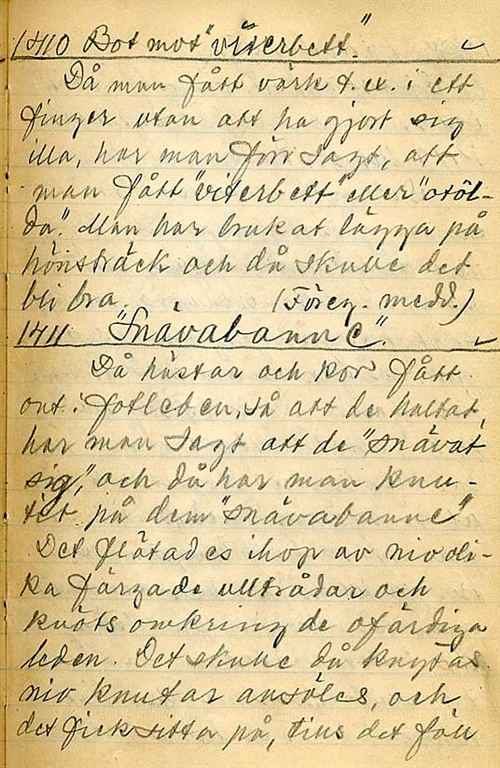 1410 Bot mot "viterbett".
Då man fått värk t. ex. i ett
finger utan att ha gjort sig
illa, har man förr sagt, att
man fått "viterbett" eller "otöl-
da". Man har brukat lägga på
hönsträck och då skulle det
bli bra. (Föreg. medd.)
1411 "Snävabanne".
Då hästar och kor fått
ont i fotleden, så att de haltat,
har man sagt att de "snävat
sig", och då har man knu-
tet på dem "snävabanne"
Det flätades ihop av nio oli-
ka färgade ulltrådar och
knöts omkring de ofärdiga
leden. Det skulle då knytas
nio knutar ansöles, och
det fick sitta på, tills det föll